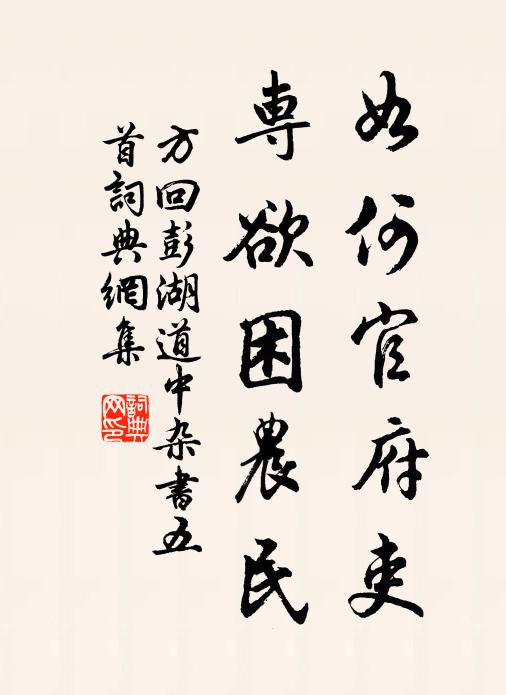 如何官府吏
専欲困農民
方回彭湖道中杂書五
首詞典網集
詞典
网印